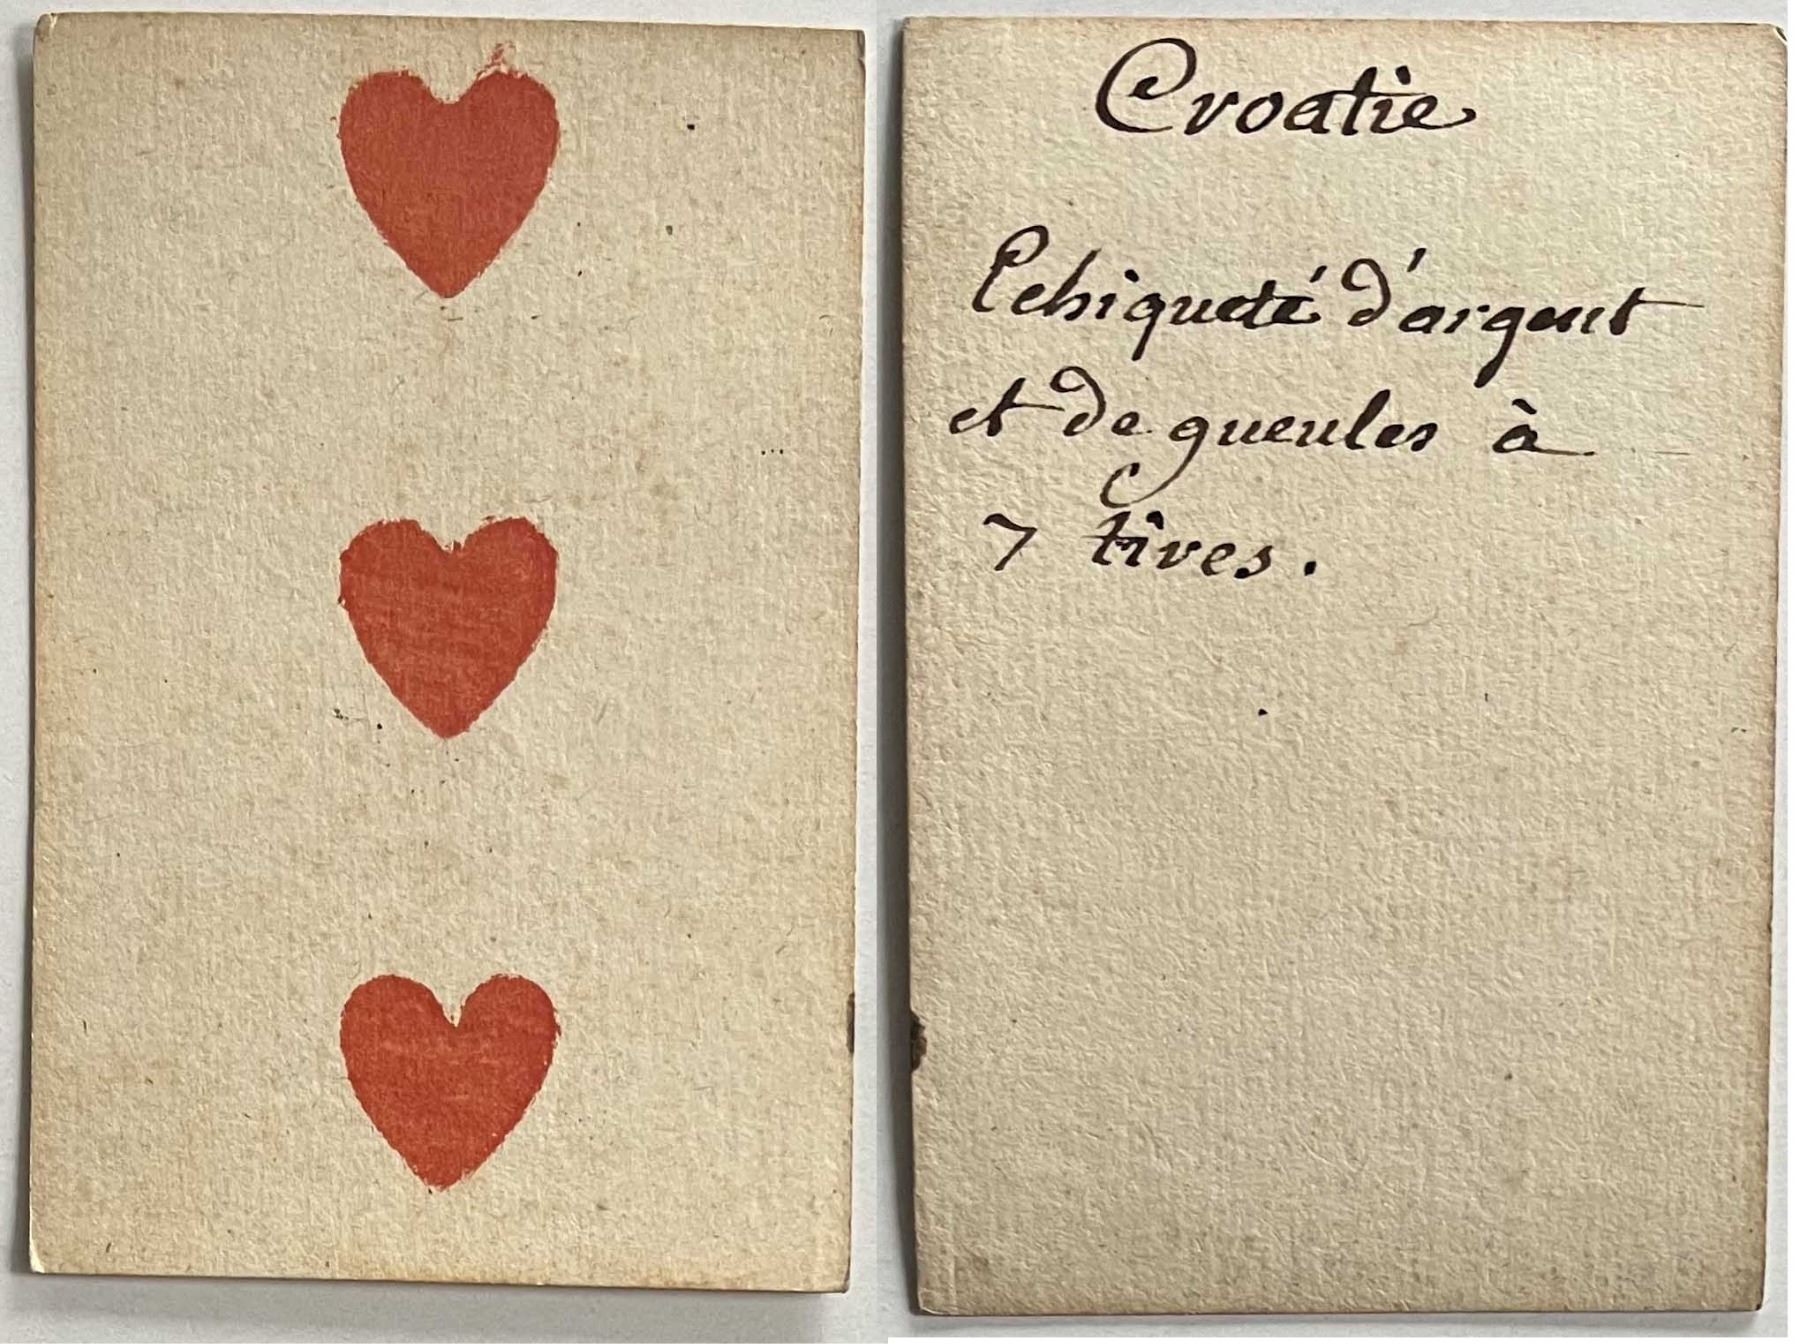 Croatie
Echiqueté d'argent
et de gueules à
7 tires.